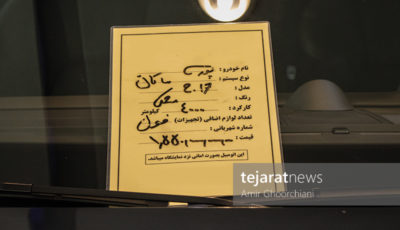 نام خودرو :
نوع سیستم : ماکان
مدل : ۲۰۱۴
رنگ : مشکی
کارکرد : ۴۰۰۰۰ کیلومتر
تعداد لوازم اضافی (تجهیزات) :
شماره شهربانی :
قیمت :
این اتومبیل بصورت امانی نزد نمایشگاه میباشد.
tejaratnews
Amir Ghoorchiani